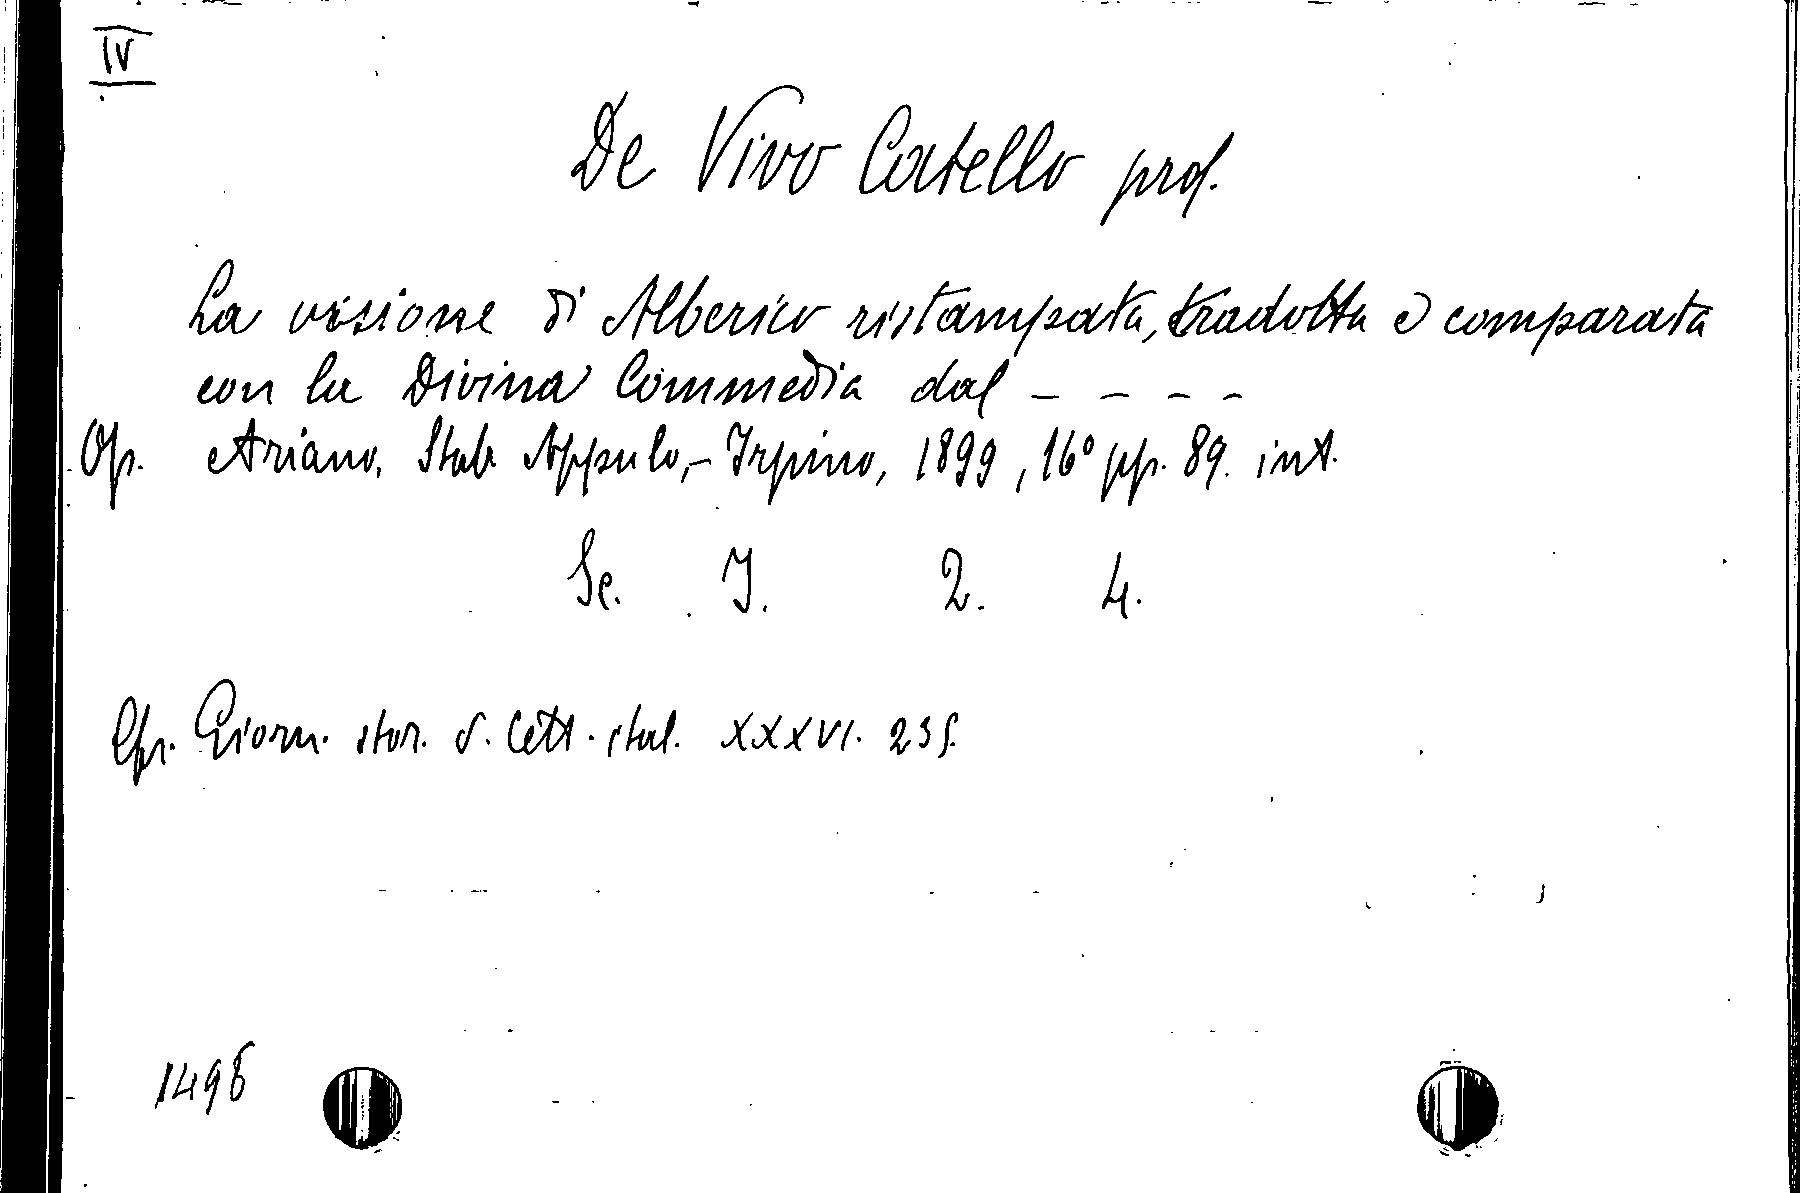 IV
De Vivo Catello prof.
La visione di Alberico ristampata, tradotta e comparata
con la Divina Commedia dal - - - -
Op. Ariano, Stab. Appulo-Irpino, 1899, 16° pp. 89. int.
Sc. I. 2. 4.
Cfr. Giorn. stor. d. lett. ital. XXXVI. 235.
1498